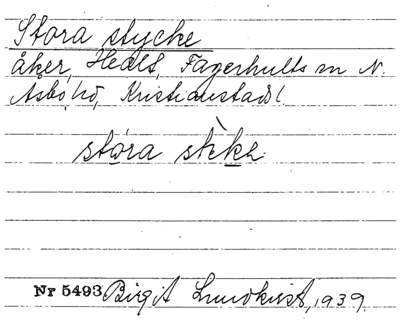 Stora stycke
åker, Heds, Fagerhults sn N.
Åsbo hd, Kristianstad l
stóra stèke
Nr 5493 Birgit Lundkvist, 1939.